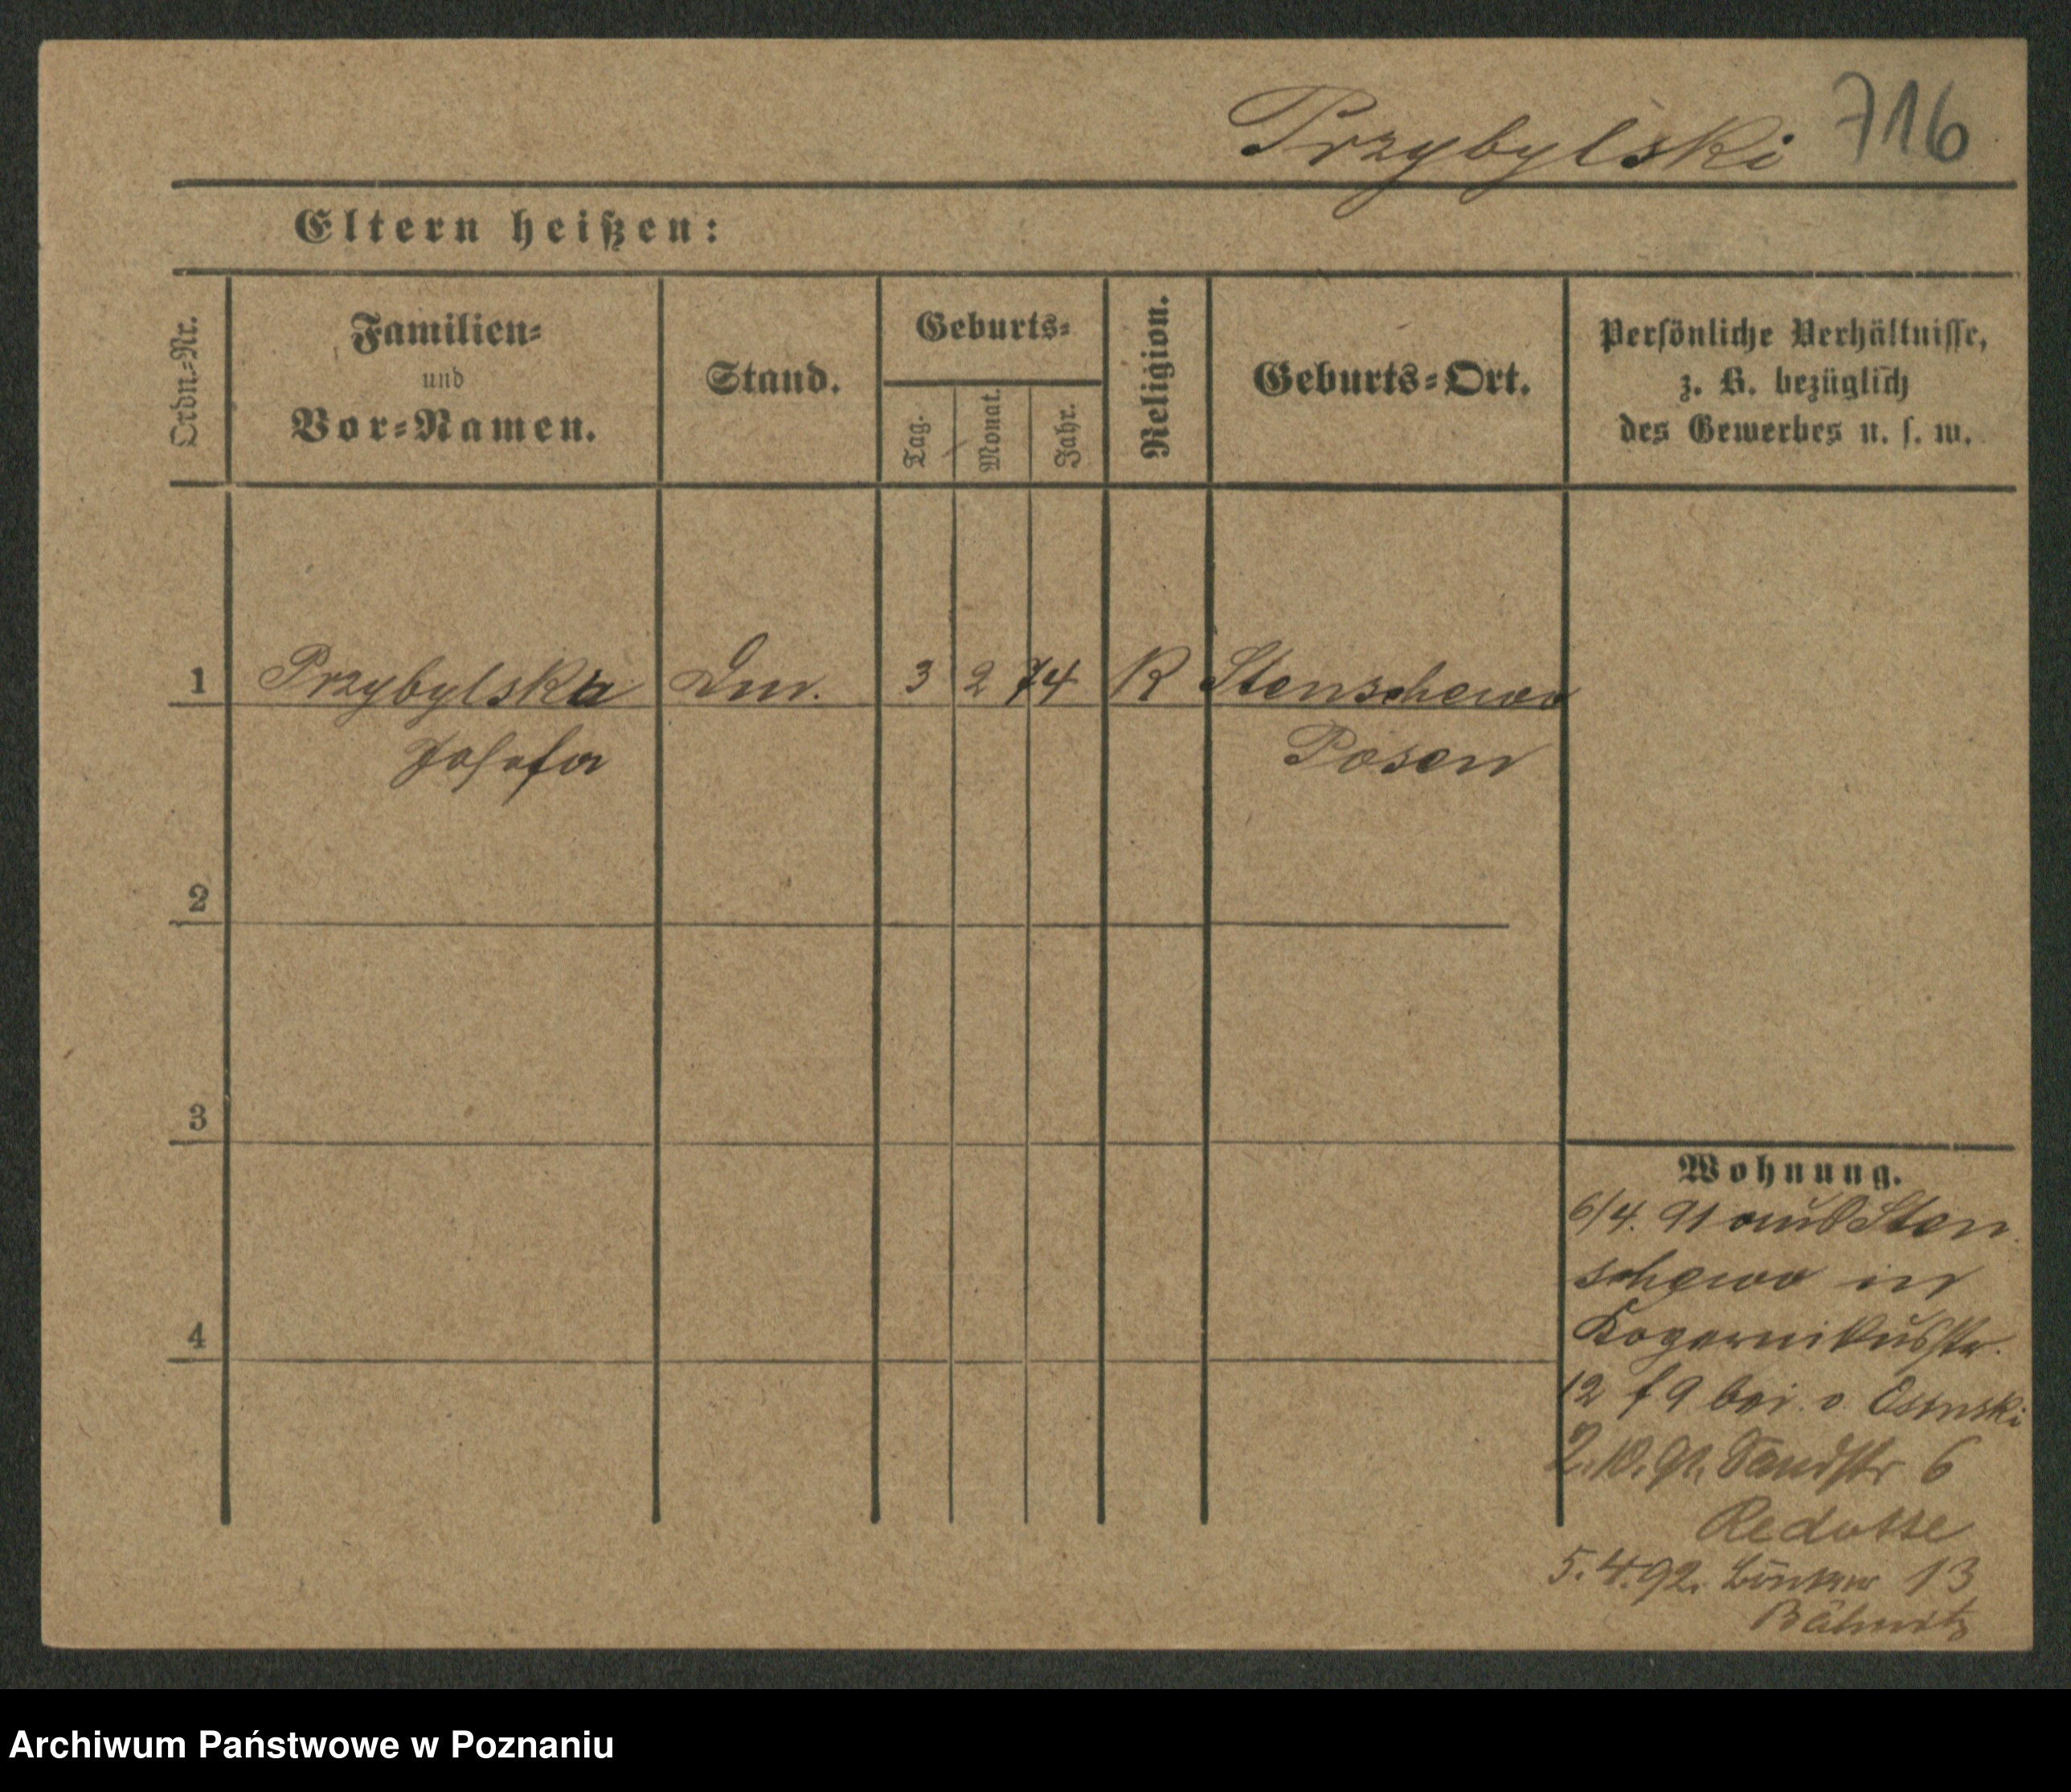 Przybylski 716
Eltern heißen:
Ordn.-Nr.
Familien-
und
Vor-Namen.
Stand.
Geburts-
Tag.
Monat.
Jahr.
Religion.
Geburts-Ort.
Persönliche Verhältnisse,
z. B. bezüglich
des Gewerbes u. s. w.
1 Przybylska 3 2 74 K Stenschewo
Josefa Posen
2
3
4
Wohnung.
6/4. 91 aus Sten
schewo in
Kopernikusstr.
12 f 9 bei v
2.10.91. Sandstr 6
5.4.92. 13